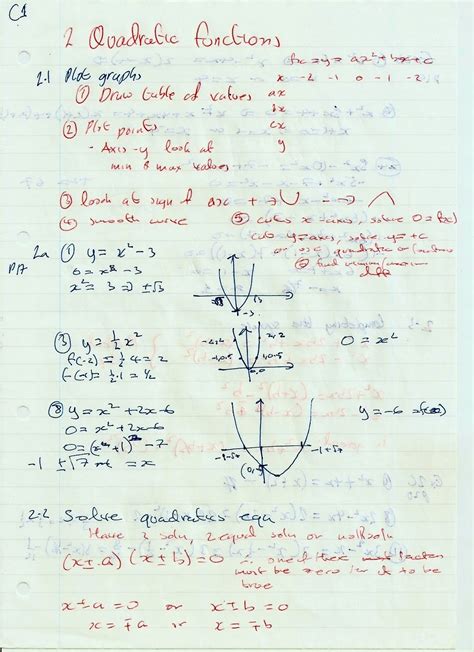 C1
2 Quadratic functions
f(x)=y= ax²+bx+c
2.1 Plot graphs x -2 -1 0 -1 -2
① Draw table of values ax
bx
② Plot points cx
- Axis-y look at y
min & max values
③ look at sign of ax + → ∪ - → ∩
④ smooth curve ⑤ cuts x axis, solve 0=f(x)
cuts y=axis, solve y=+c
or use quadratic
⑥ find minimum/maximum
2a ① y = x²-3
P17 0 = x² - 3
x² = 3 => ±√3
-√3 √3
-3
③ y = ½x²
f(-2) = ½ 4 = 2
f(-1) = ½.1 = ½
-2,2 2,2
-1,0.5 1,0.5
0,0
0 = x²
⑧ y = x² + 2x-6
0 = x² + 2x-6
0 = (x+1)² -7
-1 ±√7 = x
y = -6 = f(0)
-1-√7 -1+√7
2.2 Solve quadratics equ
Have 2 soln, 2 equal soln or no soln
(x±a)(x±b)=0 - one of these factors
must be zero for it to be
true
x±a=0 or x±b=0
x = ∓a or x = ∓b